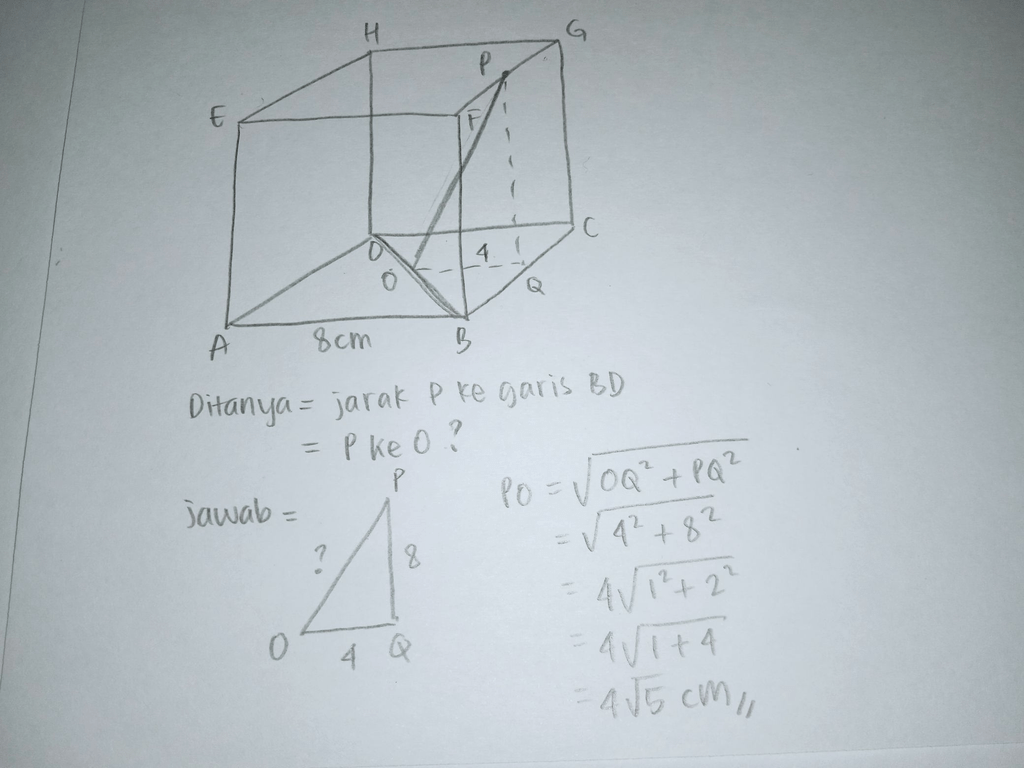 H G
P
E F
D 4 C
O Q
A 8cm B
Ditanya = jarak P ke garis BD
= P ke O ?
jawab =
P
? 8
O 4 Q
PO = √OQ² + PQ²
= √4² + 8²
= 4√1² + 2²
= 4√1 + 4
= 4√5 cm,,